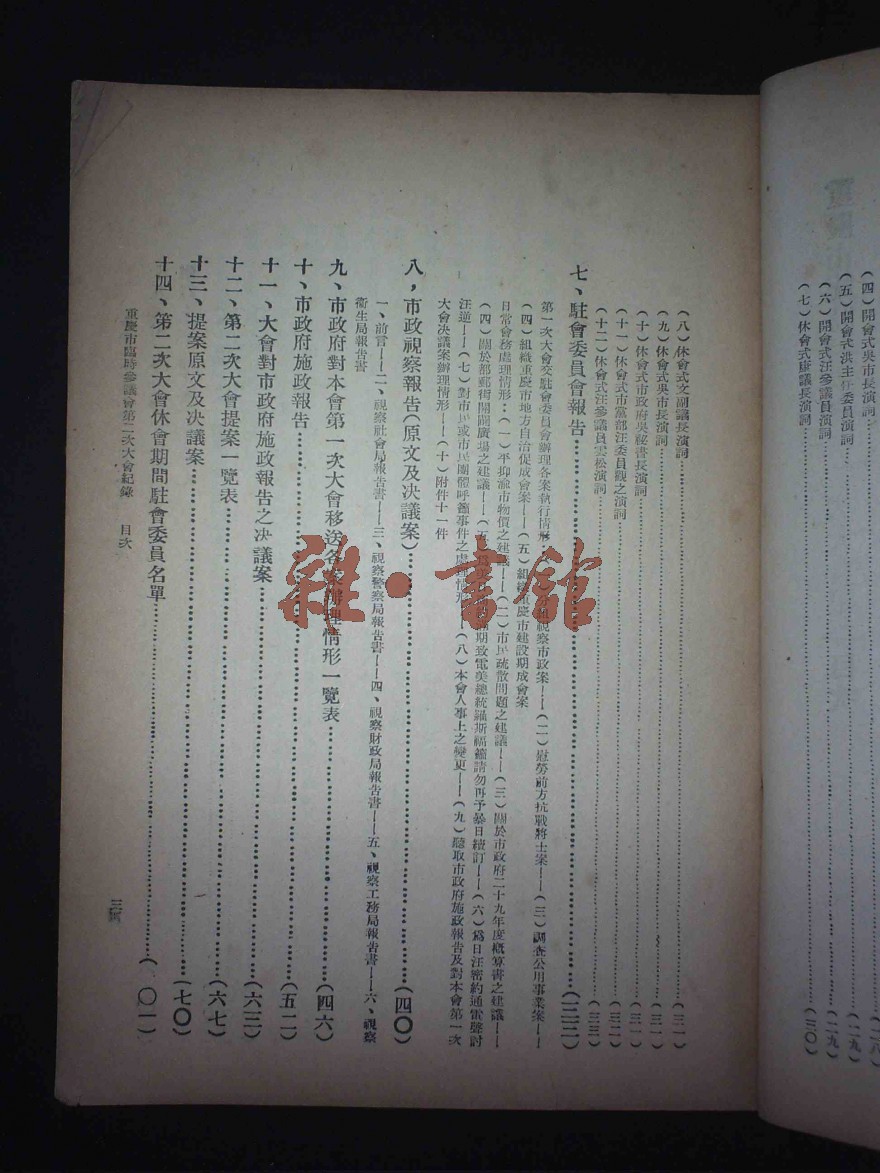 (四)開會式吳市長演詞
(五)開會式洪主任委員演詞 (二九)
(六)開會式汪參議員演詞 (二九)
(七)休會式康議長演詞 (三〇)
(八)休會式文副議長演詞 (三一)
(九)休會式吳市長演詞 (三一)
(十)休會式市政府吳秘書長演詞 (三一)
(十一)休會式市黨部汪委員觀之演詞 (三二)
(十二)休會式汪參議員雲松演詞 (三三)
七、駐會委員會報告 (三三)
第一次大會交駐會委員會辦理各案執行情形 視察市政案——(二)慰勞前方抗戰將士案——(三)調查公用事業案——
(四)組織重慶市地方自治促成會案——(五)組織重慶市建設期成會案
日常會務處理情形:(一)平抑渝市物價之建議——(二)市民疏散問題之建議——(三)關於市政府二十九年度概算書之建議——
(四)關於都郵街開闢廣場之建議——(五) 期致電美總統羅斯福籲請勿再予暴日續訂——(六)爲日汪密約通電聲討
汪逆——(七)對市民或市民團體呼籲事件之處理情形——(八)本會人事上之變更——(九)聽取市政府施政報告及對本會第一次
大會決議案辦理情形——(十)附件十一件
八,市政視察報告(原文及決議案) (四〇)
一、前言——二、視察社會局報告書——三、視察警察局報告書——四、視察財政局報告書——五、視察工務局報告書——六、視察
衛生局報告書
九、市政府對本會第一次大會移送各案辦理情形一覽表 (四六)
十、市政府施政報告 (五二)
十一、大會對市政府施政報告之決議案 (六三)
十二、第二次大會提案一覽表 (六七)
十三、提案原文及決議案 (七〇)
十四、第二次大會休會期間駐會委員名單 ( 〇一)
重慶市臨時參議會第二次大會紀錄 目次
三
雜·書館